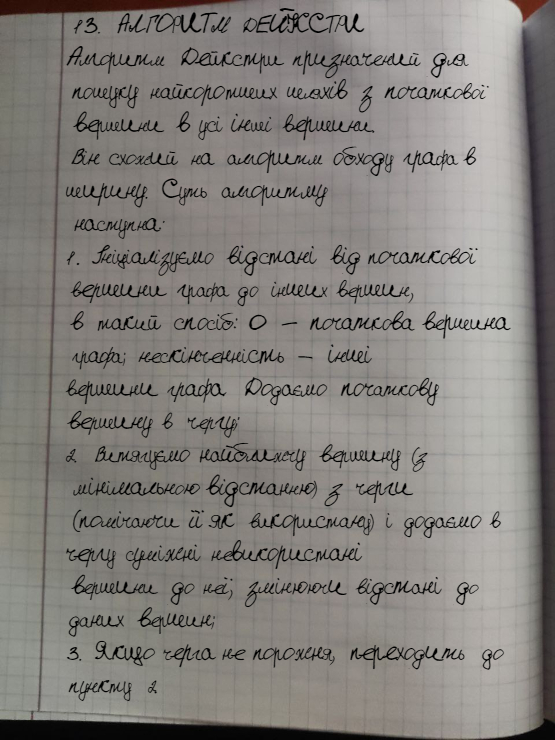 13. АЛГОРИТМ ДЕЙКСТРИ
Алгоритм Дейкстри призначений для
пошуку найкоротших шляхів з початкової
вершини в усі інші вершини.
Він схожий на алгоритм обходу графа в
ширину. Суть алгоритму
наступна:
1. Ініціалізуємо відстані від початкової
вершини графа до інших вершин,
в такий спосіб: 0 — початкова вершина
графа; нескінченність — інші
вершини графа. Додаємо початкову
вершину в чергу;
2 Витягуємо найближчу вершину (з
мінімальною відстанню) з черги
(помічаючи її як використану) і додаємо в
чергу суміжні невикористані
вершини до неї, змінюючи відстані до
даних вершин;
3. Якщо черга не порожня, переходить до
пункту 2